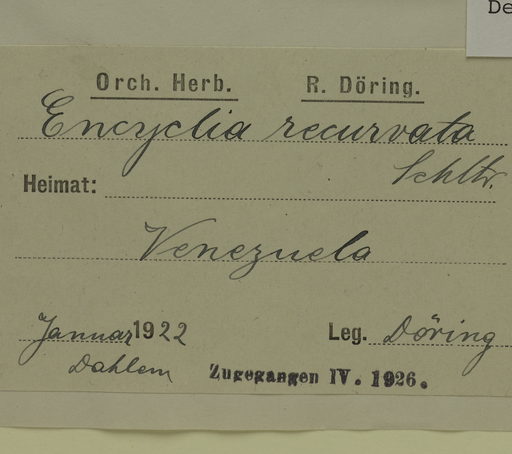 De
Orch. Herb. R. Döring.
Encyclia recurvata
Schltr.
Heimat:
Venezuela
Januar 1922 Leg. Döring
Dahlem Zugegangen IV. 1926.